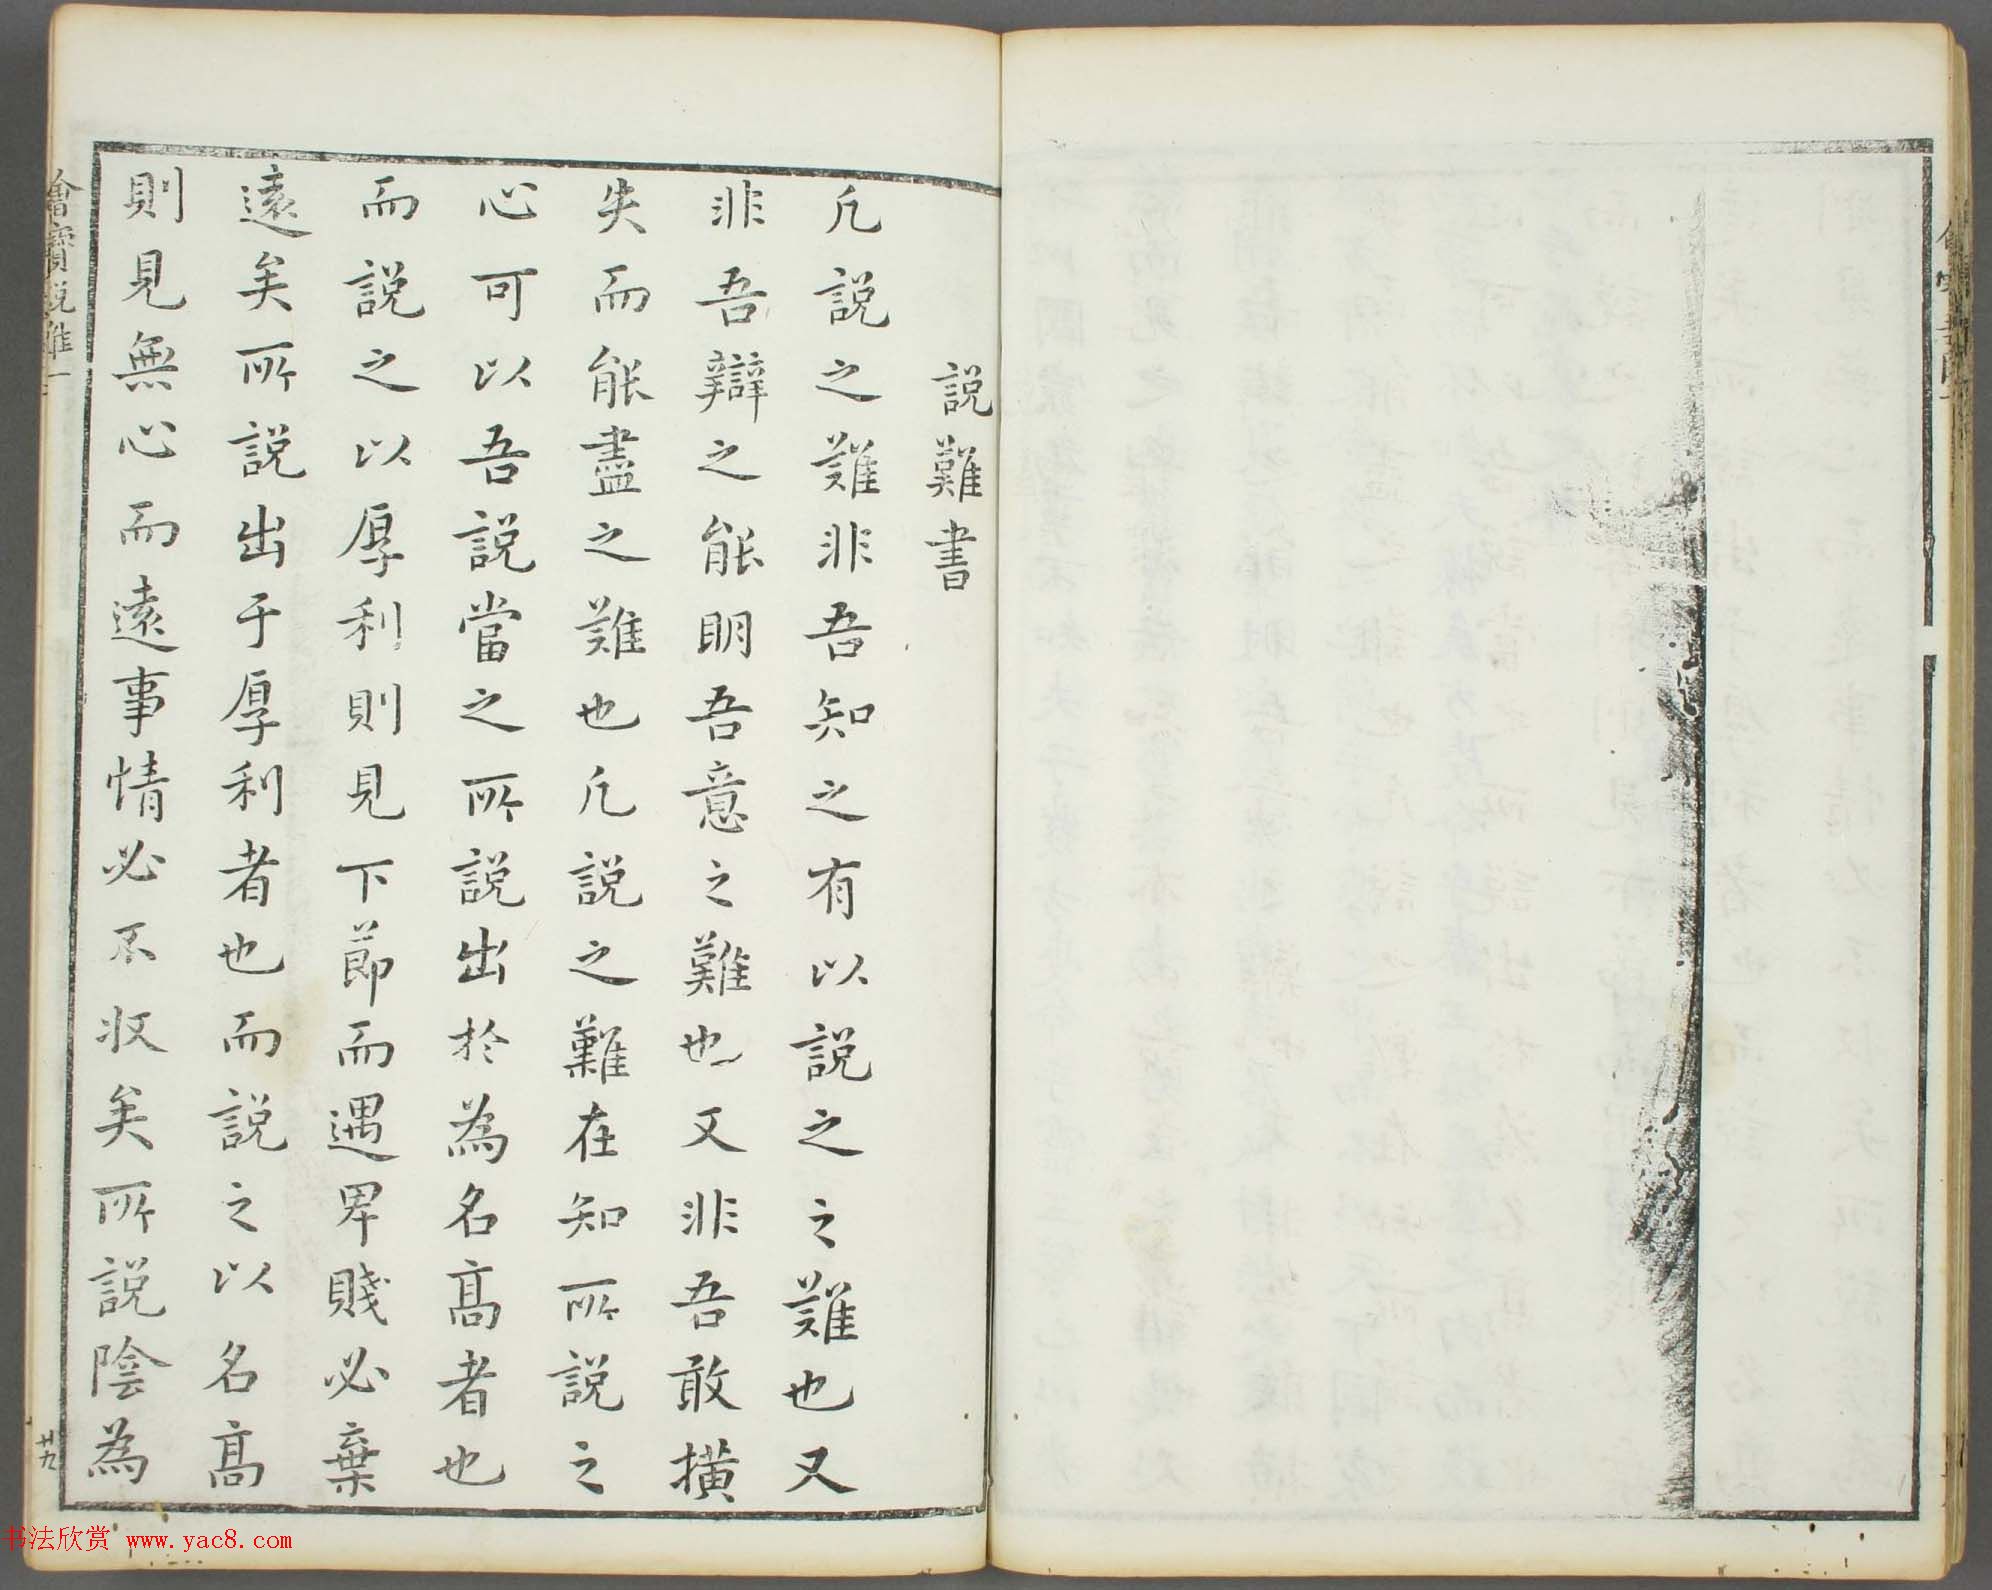 說難書
凡說之難非吾知之有以說之之難也又
非吾辯之能明吾意之難也又非吾敢橫
失而能盡之難也凡說之難在知所說之
心可以吾說當之所說出於為名高者也
而說之以厚利則見下節而遇卑賤必棄
遠矣所說出于厚利者也而說之以名高
則見無心而遠事情必不收矣所說陰為
會寶說難一
廿九
书法欣赏 www.yac8.com